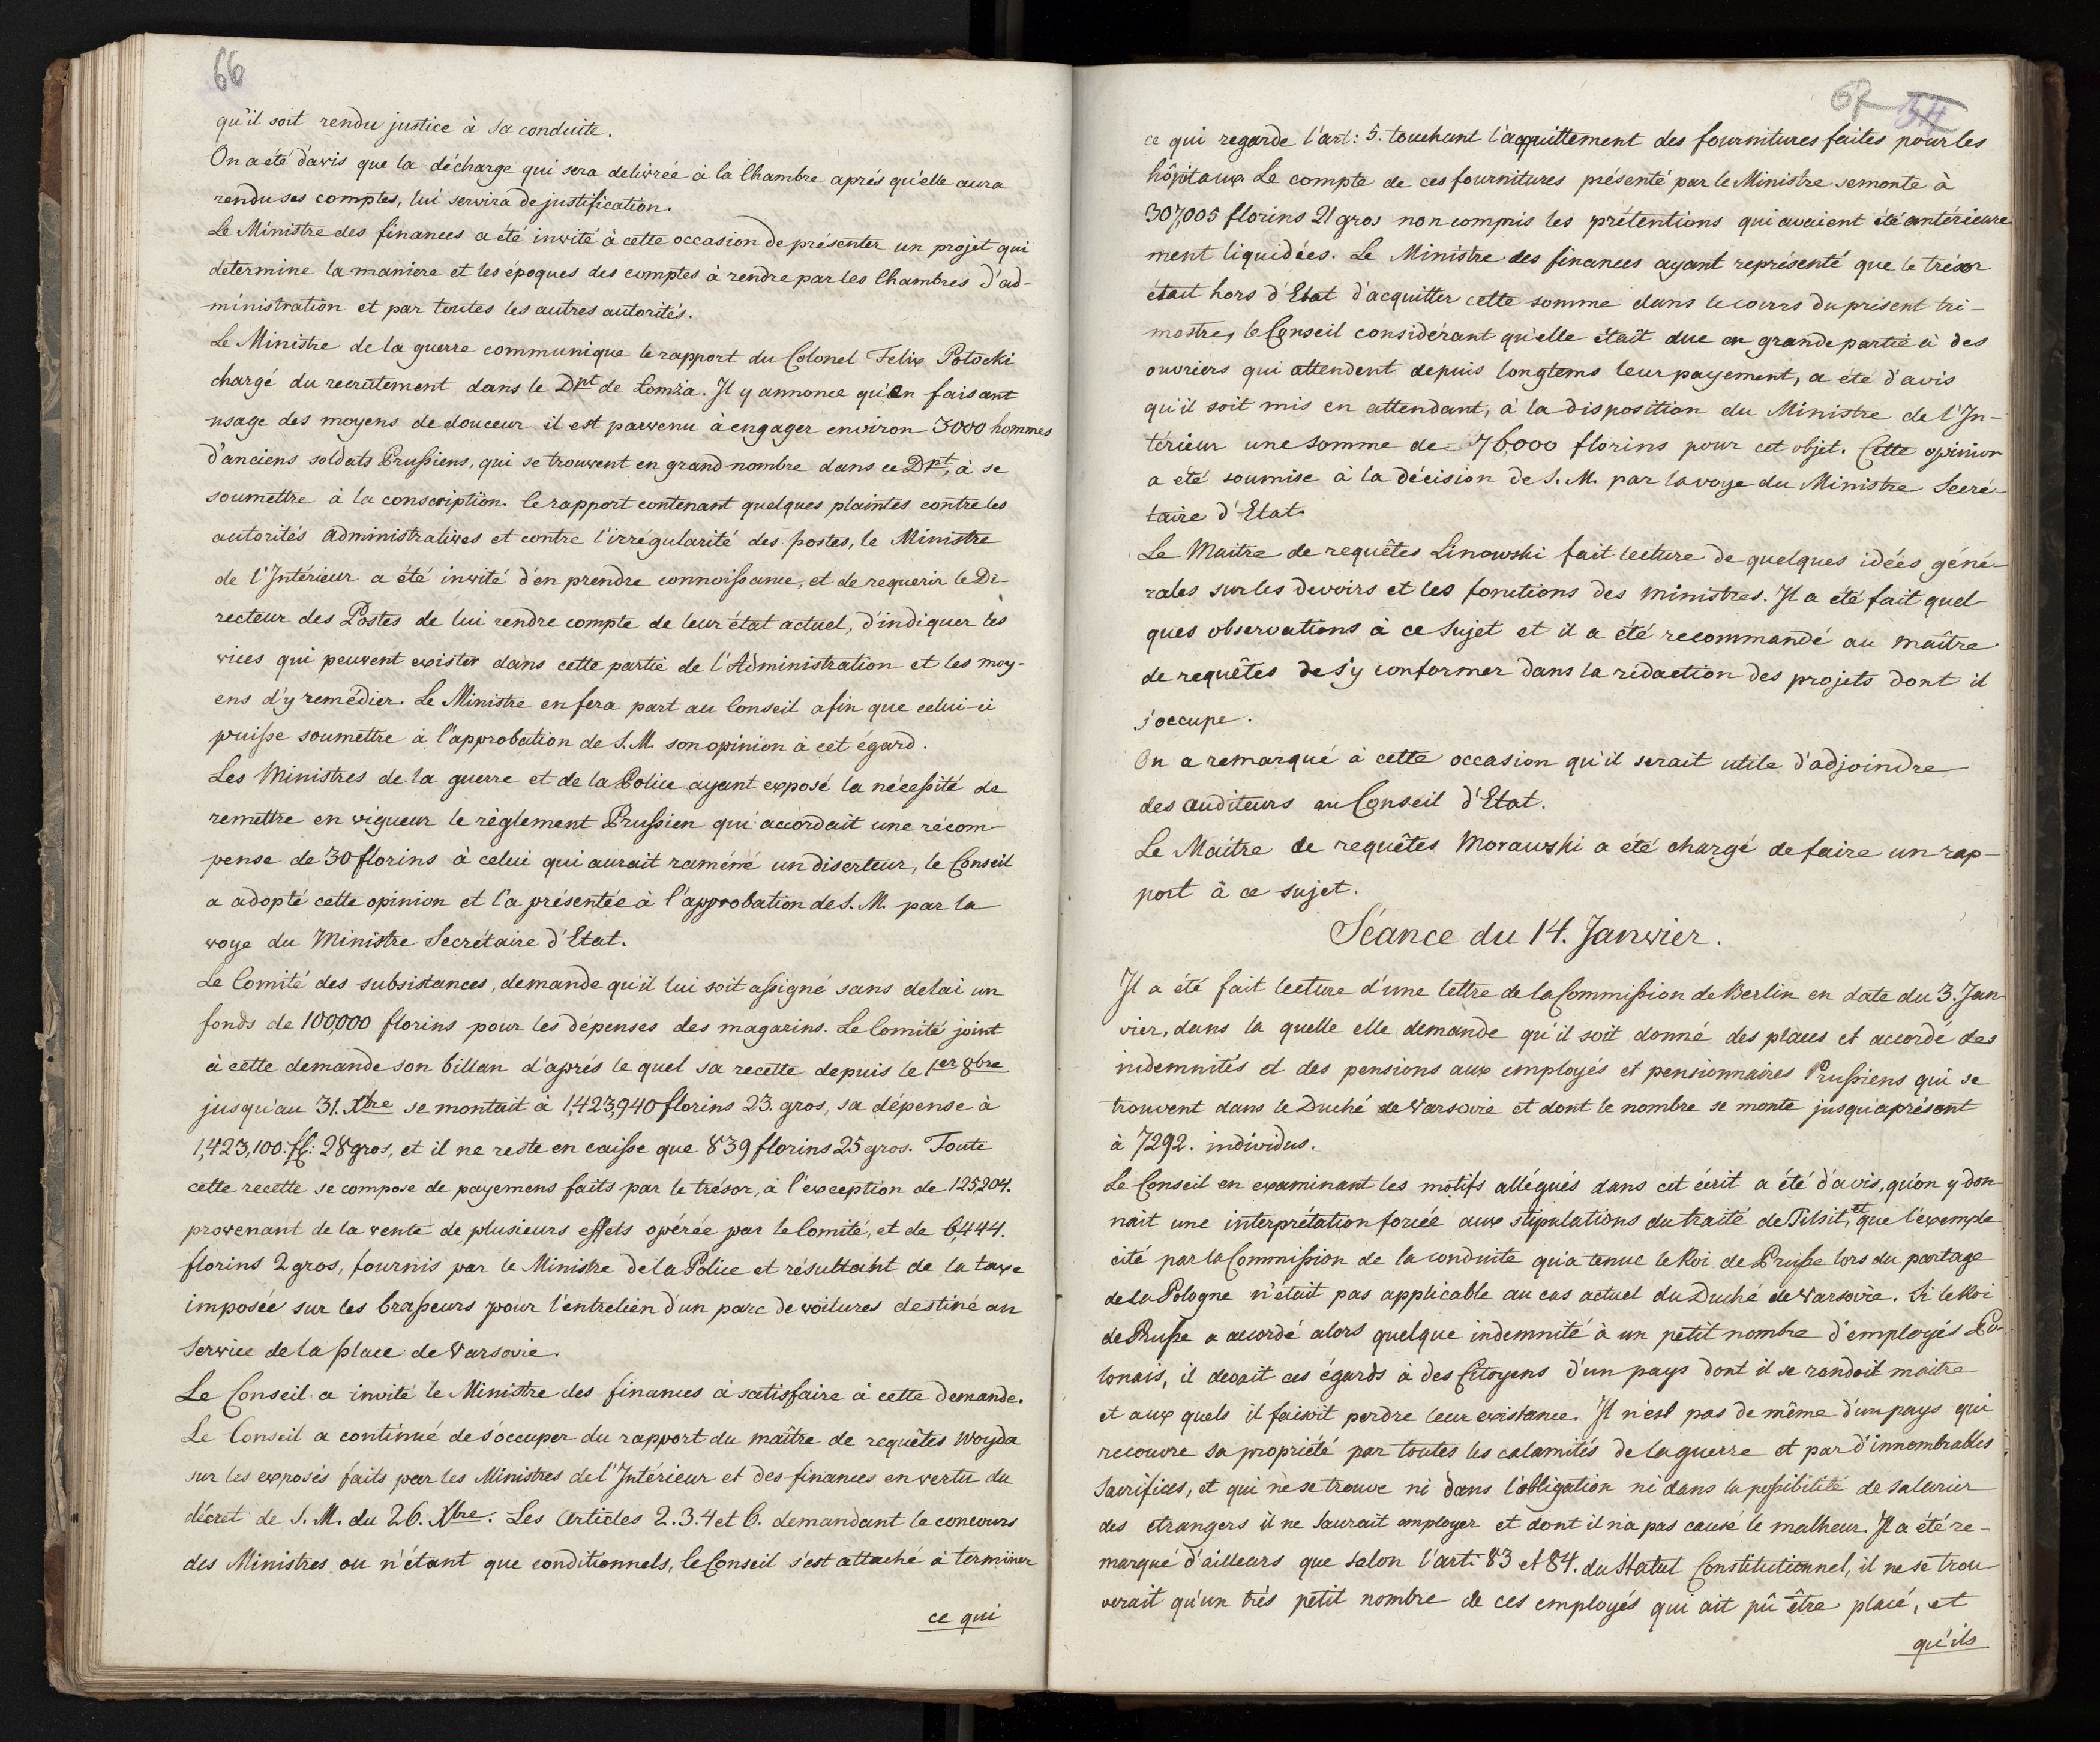 66
qu'il soit rendu justice à sa conduite.
On a été d'avis que la décharge qui sera delivrée à la Chambre aprés qu'elle aura
rendu ses comptes, lui servira de justification.
Le Ministre des finances a été invité à cette occasion de présenter un projet qui
determine la maniere et les époques des comptes à rendre par les Chambres d'ad-
ministration et par toutes les autres autorités.
Le Ministre de la guerre communique le rapport du Colonel Felix Potocki
chargé du recrutement dans le Dpt de Lomża. Il y annonce qu'en faisant
usage des moyens de douceur il est parvenu à engager environ 3000 hommes
d'anciens soldats Prussiens, qui se trouvent en grand nombre dans ce Dpt, à se
soumettre à la conscription. Ce rapport contenant quelques plaintes contre les
autorités administratives et contre l'irrégularité des postes, le Ministre
de l'Intérieur a été invité d'en prendre connoissance, et de requerir le Di-
recteur des Postes de lui rendre compte de leur état actuel, d'indiquer les
vices qui peuvent exister dans cette partie de l'Administration et les moy-
ens d'y remédier. Le Ministre en fera part au Conseil afin que celui-ci
puisse soumettre à l'approbation de S. M. son opinion à cet égard.
Les Ministres de la guerre et de la Police ayant exposé la nécessité de
remettre en vigueur le règlement Prussien qui accordait une récom-
pense de 30 florins à celui qui aurait raméné un diserteur, le Conseil
a adopté cette opinion et l'a présentée à l'approbation de S. M. par la
voye du Ministre Secrétaire d'Etat.
Le Comité des subsistances, demande qu'il lui soit assigné sans delai un
fonds de 100,000 florins pour les dépenses des magazins. Le Comité joint
à cette demande son billan d'aprés le quel sa recette depuis le 1er 8bre
jusqu'au 31. Xbre se montait à 1,423,940 florins 23. gros, sa dépense à
1,423,100. fl: 28 gros, et il ne reste en caisse que 839 florins 25 gros. Toute
cette recette se compose de payemens faits par le trésor, à l'exception de 125,204.
provenant de la vente de plusieurs effets opérée par le Comité, et de 6,444.
florins 2 gros, fournis par le Ministre de la Police et résultant de la taxe
imposée sur les brasseurs pour l'entretien d'un parc de voitures destiné au
service de la place de Varsovie.
Le Conseil a invité le Ministre des finances à satisfaire à cette demande.
Le Conseil a continué de s'occuper du rapport du maître de requêtes Woyda
sur les exposés faits par les Ministres de l'Intérieur et des finances en vertu du
décret de S. M. du 26. Xbre. Les Articles 2. 3. 4 et 6. demandant le concours
des Ministres ou n'étant que conditionnels, le Conseil s'est attaché à terminer
ce qui
67 54
ce qui regarde l'art: 5. touchant l'acquittement des fournitures faites pour les
hôpitaux. Le compte de ces fournitures présenté par le Ministre se monte à
307,005 florins 21 gros non compris les prétentions qui avaient été antérieure
ment liquidées. Le Ministre des finances ayant représenté que le trésor
était hors d'Etat d'acquitter cette somme dans le cours du présent tri-
mestre, le Conseil considérant qu'elle était due en grande partie à des
ouvriers qui attendent depuis longtems leur payement, a été d'avis
qu'il soit mis en attendant, à la disposition du Ministre de l'In-
térieur une somme de 76,000 florins pour cet objet. Cette opinion
a été soumise à la décision de S. M. par la voye du Ministre Secré-
taire d'Etat.
Le Maitre de requêtes Linowski fait lecture de quelques idées géné-
rales sur les devoirs et les fonctions des ministres. Il a été fait quel-
ques observations à ce sujet et il a été recommandé au maître
de requêtes de s'y conformer dans la rédaction des projets dont il
s'occupe.
On a remarqué à cette occasion qu'il serait utile d'adjoindre
des auditeurs au Conseil d'Etat.
Le Maitre de requêtes Morawski a été chargé de faire un rap-
port à ce sujet.
Séance du 14. Janvier.
Il a été fait lecture d'une lettre de la Commission de Berlin en date du 3. Jan-
vier, dans la quelle elle demande qu'il soit donné des places et accordé des
indemnités et des pensions aux employés et pensionnaires Prussiens qui se
trouvent dans le Duché de Varsovie et dont le nombre se monte jusqu'aprésent
à 7292. individus.
Le Conseil en examinant les motifs allégués dans cet écrit a été d'avis, qu'on y don-
nait une interprétation forcée aux stipulations du traité de Tilsit, et que l'exemple
cité par la Commission de la conduite qu'a tenue le Roi de Prusse lors du partage
de la Pologne n'était pas applicable au cas actuel du Duché de Varsovie. Si le Roi
de Prusse a accordé alors quelque indemnité à un petit nombre d'employés Po-
lonais, il devait ces égards à des Citoyens d'un pays dont il se rendoit maitre
et aux quels il faisoit perdre leur existance. Il n'est pas de même d'un pays qui
recouvre sa propriété par toutes les calamités de la guerre et par d'innombrables
sacrifices, et qui ne se trouve ni dans l'obligation ni dans la possibilité de salarier
des etrangers il ne saurait employer et dont il n'a pas causé le malheur. Il a été re-
marqué d'ailleurs que selon l'art: 83 et 84. du Statut Constitutionnel, il ne se trou-
verait qu'un très petit nombre de ces employés qui ait pû être placé, et
qu'ils